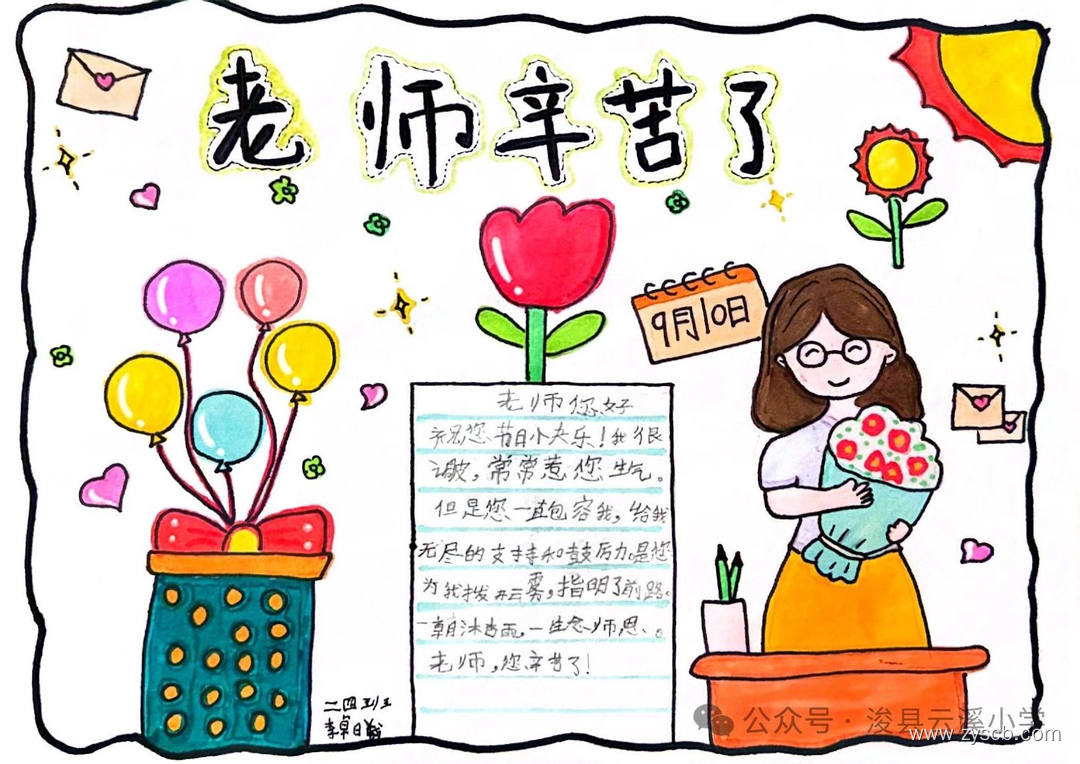 老师辛苦了
9月10日
老师您好
祝您节日小夬乐！我很
调皮，常常惹您生气。
但是您一直包容我，给我
无尽的支持和鼓励是您
为我拨开云雾，指明了前路、
一朝沐杏雨，一生念师恩。
老师，您辛苦了！
二四班
李卓日
公众号·浚县云溪小学
www.zyscb.com